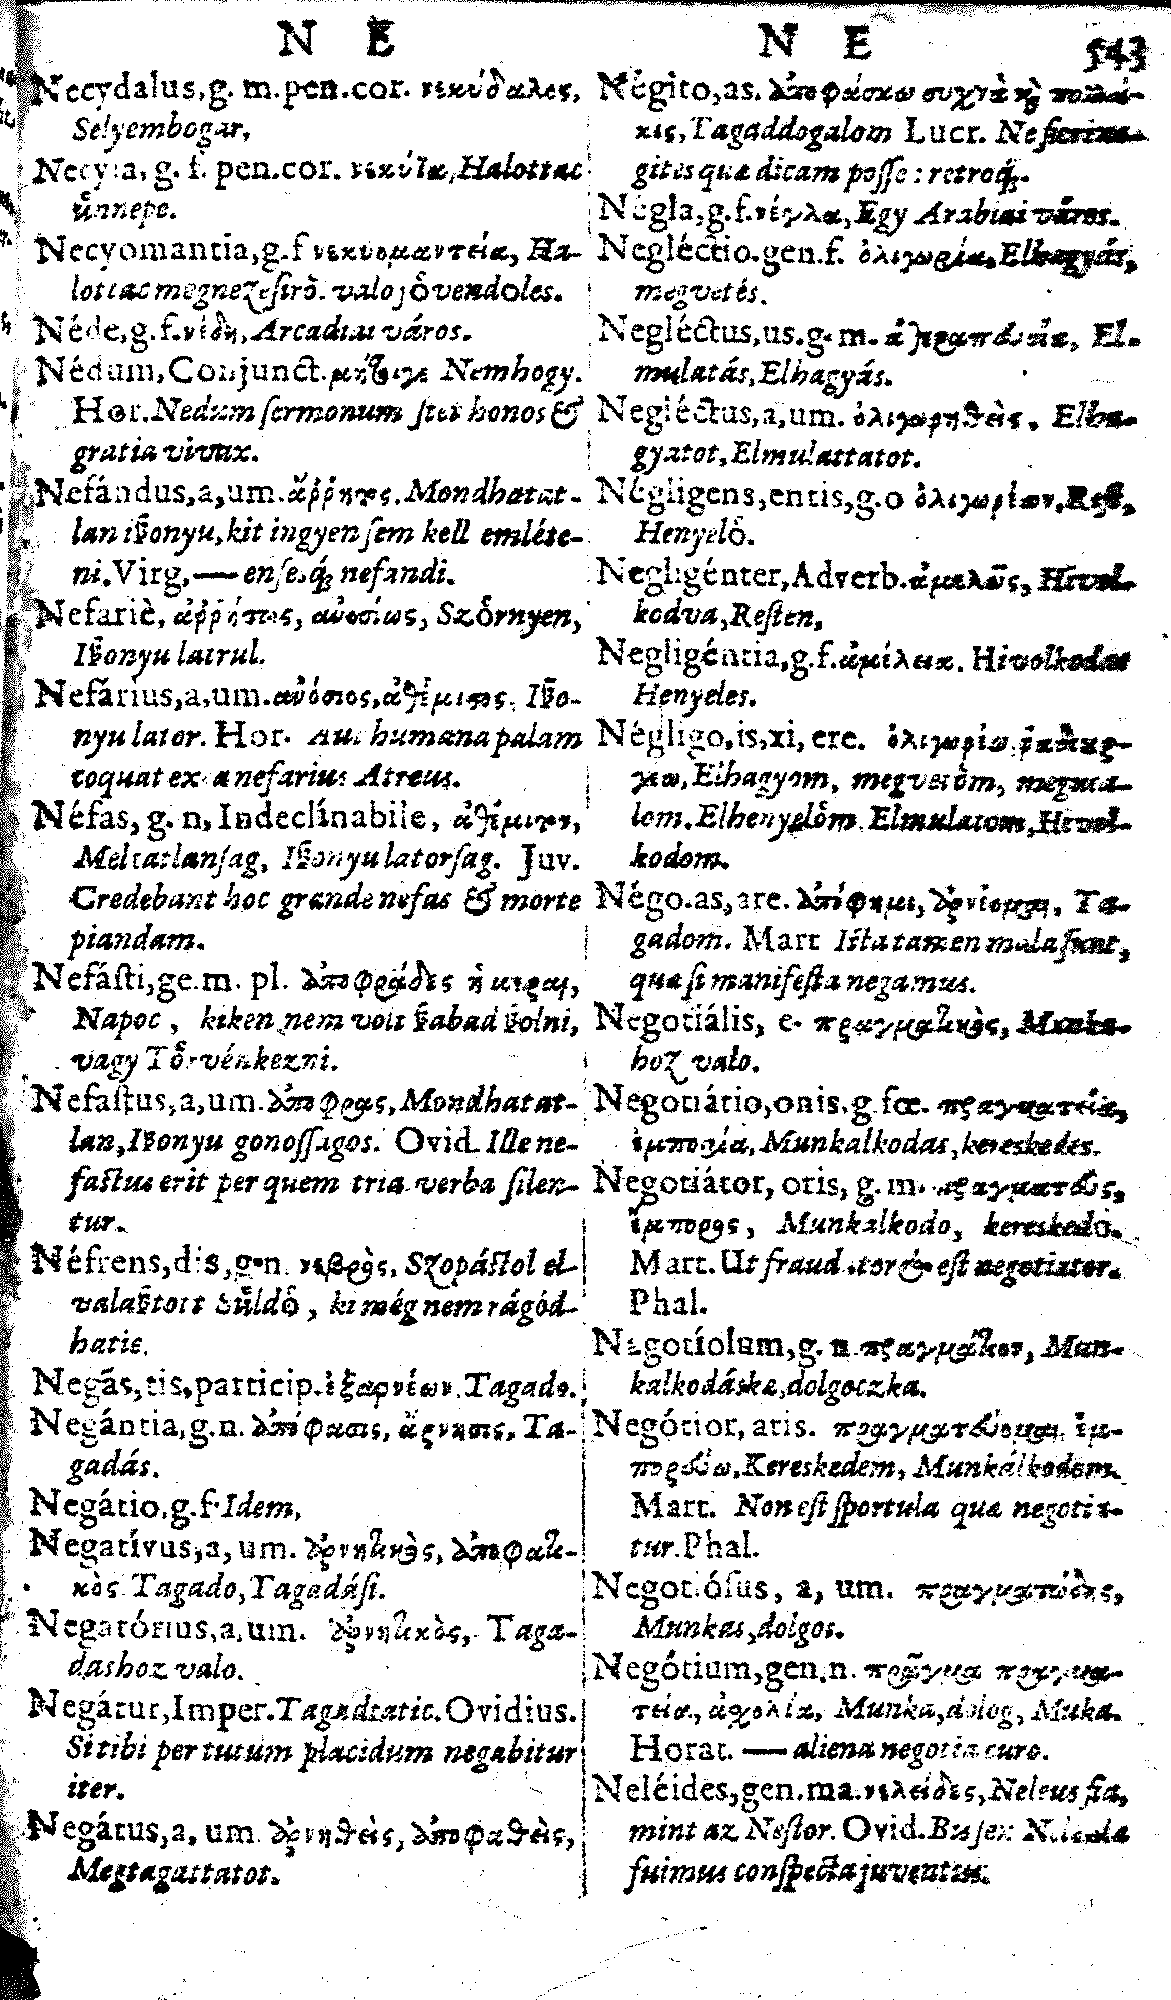 N E
Necydalus,g. m.pen.cor. νεκύδαλες,
Selyembogar,
Necyia, g. f. pen.cor. νεκύϊα, Halottac
ůnnepe.
Necyomantia,g.f νεκυομαντεία, Ha-
lottac megnezesirő. valo jővendoles.
Néde,g.f.νέδη, Arcadiai város.
Nédum,Conjunct. μήτιγε Nemhogy.
Hor. Nedum sermonum stet honos &
gratia vivax.
Nefándus,a,um. ἄῤῥητος. Mondhatat-
lan ißonyu, kit ingyen sem kell emléte-
ni. Virg,— ense.q; nefandi.
Nefariè, ἀῤῥήτως, ἀνοσίως, Szőrnyen,
Ißonyu latrul.
Nefárius,a,um.ἀνόσιος,ἀθέμιτος. Ißo-
nyu lator. Hor. Aut humana palam
coquat exta nefarius Atreus.
Néfas, g. n, Indeclínabile, ἀθέμιτον,
Meltatlansag, Ißonyu latorsag. Juv.
Credebant hoc grande nefas & morte
piandam.
Nefásti,ge.m. pl. ἀποφράδες ἡμέραι,
Napoc, kiken nem volt ßabad ßolni,
vagy Tőrvénkezni.
Nefastus,a,um.ἀποφρας, Mondhatat-
lan, Ißonyu gonossagos. Ovid. Ille ne-
fastus erit per quem tria verba silen-
tur.
Néfrens,dis,g.n. νεβρὸς. Szopástol el-
valaßtott Sůldő, ki még nem rágód-
hatic.
Negãs,tis,particip.ἐξαρνέων. Tagado.
Negántia,g.n. ἀπόφασις, ἄρνησις, Ta-
gadás.
Negátio,g.f. Idem,
Negatívus,a, um. ἀρνητικὸς, ἀποφατι-
κὸς. Tagado, Tagadási.
Negatórius,a,um. ἀρνητικὸς, Taga-
dashoz valo.
Negátur,Imper. Tagadtatic. Ovidius.
Si tibi per tutum placidum negabitur
iter.
Negátus,a, um ἀρνηθεὶς, ἀποφαθεὶς,
Megtagattatot.
N E 543
Négito,as. ἀποφάσκω συχνὰ καὶ πολλά-
κις, Tagaddogalom Lucr. Ne fieri ne-
gites quæ dicam posse: retroq;.
Négla,g.f.νέγλα, Egy Arabiai város.
Negléctio.gen.f. ὀλιγωρία. Elhagyás,
megvetés.
Negléctus,us.g. m. El-
mulatás, Elhagyás.
Negléctus,a,um. ὀλιγωρηθεὶς. Elha-
gyatot, Elmulattatot.
Négligens,entis,g.o ὀλιγωρέων, Rest,
Henyelő.
Negligénter, Adverb. ἀμελῶς, Hivol-
kodva, Resten,
Negligéntia,g.f.ἀμέλεια. Hivolkodas
Henyeles.
Négligo,is,xi, ere. ὀλιγωρέω
Elhagyom, megvetőm, meguta-
lom. Elhenyelőm. Elmulatom, Hivol-
kodom.
Négo.as,are. ἀπόφημι, ἀρνέομαι, Ta-
gadom. Mart Ista tamen mala sunt,
quæ si manifesta negamus.
Negotiális, e. πραγματικὸς, Munka-
hoz valo.
Negotiátio,onis.g fœ. πραγματεία,
ἐμπορία, Munkalkodas, kereskedes.
Negotiátor, oris, g. m. πραγματεὺς,
ἔμπορος, Munkalkodo, kereskedő.
Mart. Ut fraudator est negotiator.
Phal.
Negotíolum,g. n. πραγμάτιον, Mun-
kalkodáska, dolgoczka.
Negótior, aris. πραγματεύομαι. ἐμ-
πορεύω. Kereskedem, Munkálkodom.
Mart. Non est sportula quæ negotie-
tur. Phal.
Negotiósus, a, um. πραγματώδης,
Munkas, dolgos.
Negótium,gen.n. πρᾶγμα πραγμα-
τεία, ἀσχολία, Munka, dolog, Muka.
Horat. — aliena negotia curo.
Neléides,gen.ma. νελείδες, Neleus fia,
mint az Nestor. Ovid. Bis sex Neleidæ
fuimus conspecta juventus.